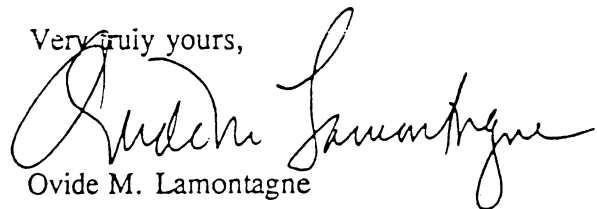 Very truly yours,
Ovide M. Lamontagne
Ovide M. Lamontagne